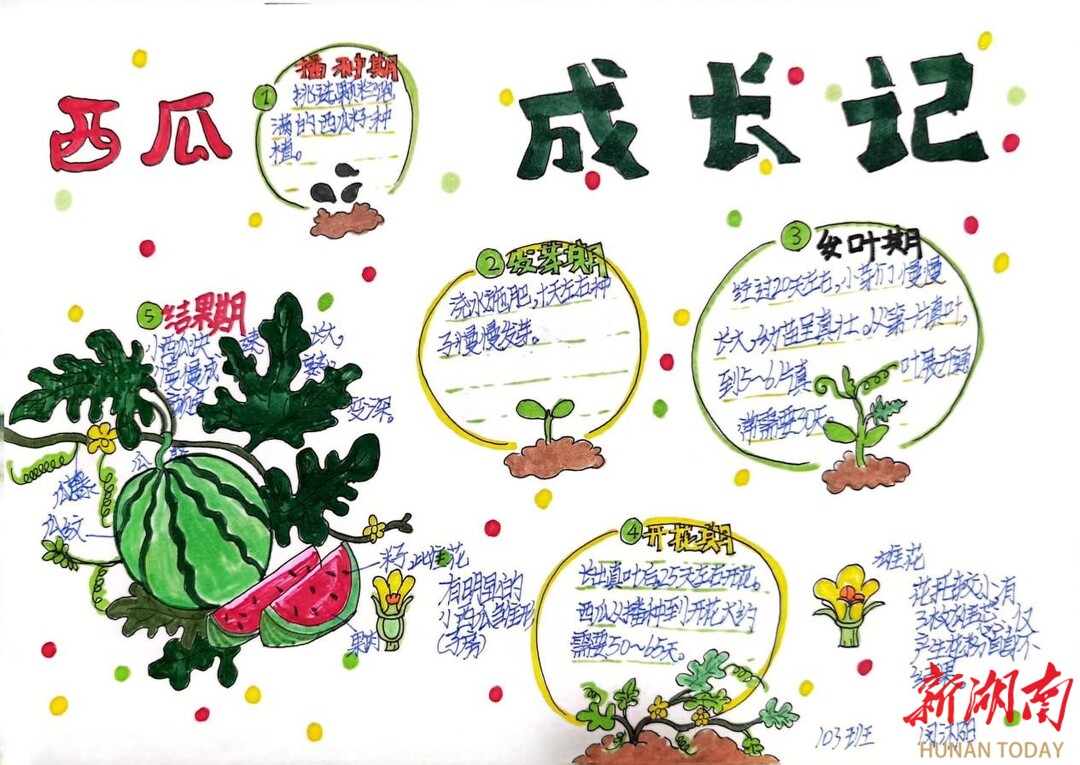 西瓜
成长记
① 播种期
挑选颗粒饱
满的西瓜籽种
植。
② 发芽期
浇水施肥,十天左右种
子慢慢发芽。
③ 发叶期
经过20天左右,小芽们慢慢
长大,幼苗呈真叶。从第一片真叶,
到5~6片真 叶展开通
常需要30天。
④ 开花期
长出真叶后25天左右开花。
西瓜从播种到开花大约
需要50~65天。
⑤ 结果期
小西瓜快 长大,
慢慢成
变深。
瓜藤
瓜纹
籽
果肉
雌花
有明显的
小西瓜雏形
(子房)
雄花
花托较小,有
3枚雄蕊,仅
产生花粉
103班
新湖南
HUNAN TODAY